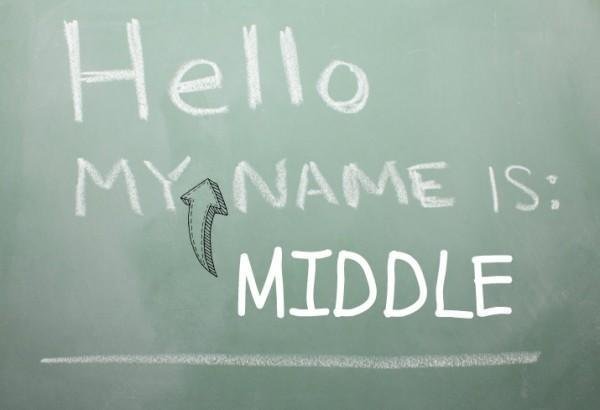 Hello
MY NAME IS:
MIDDLE